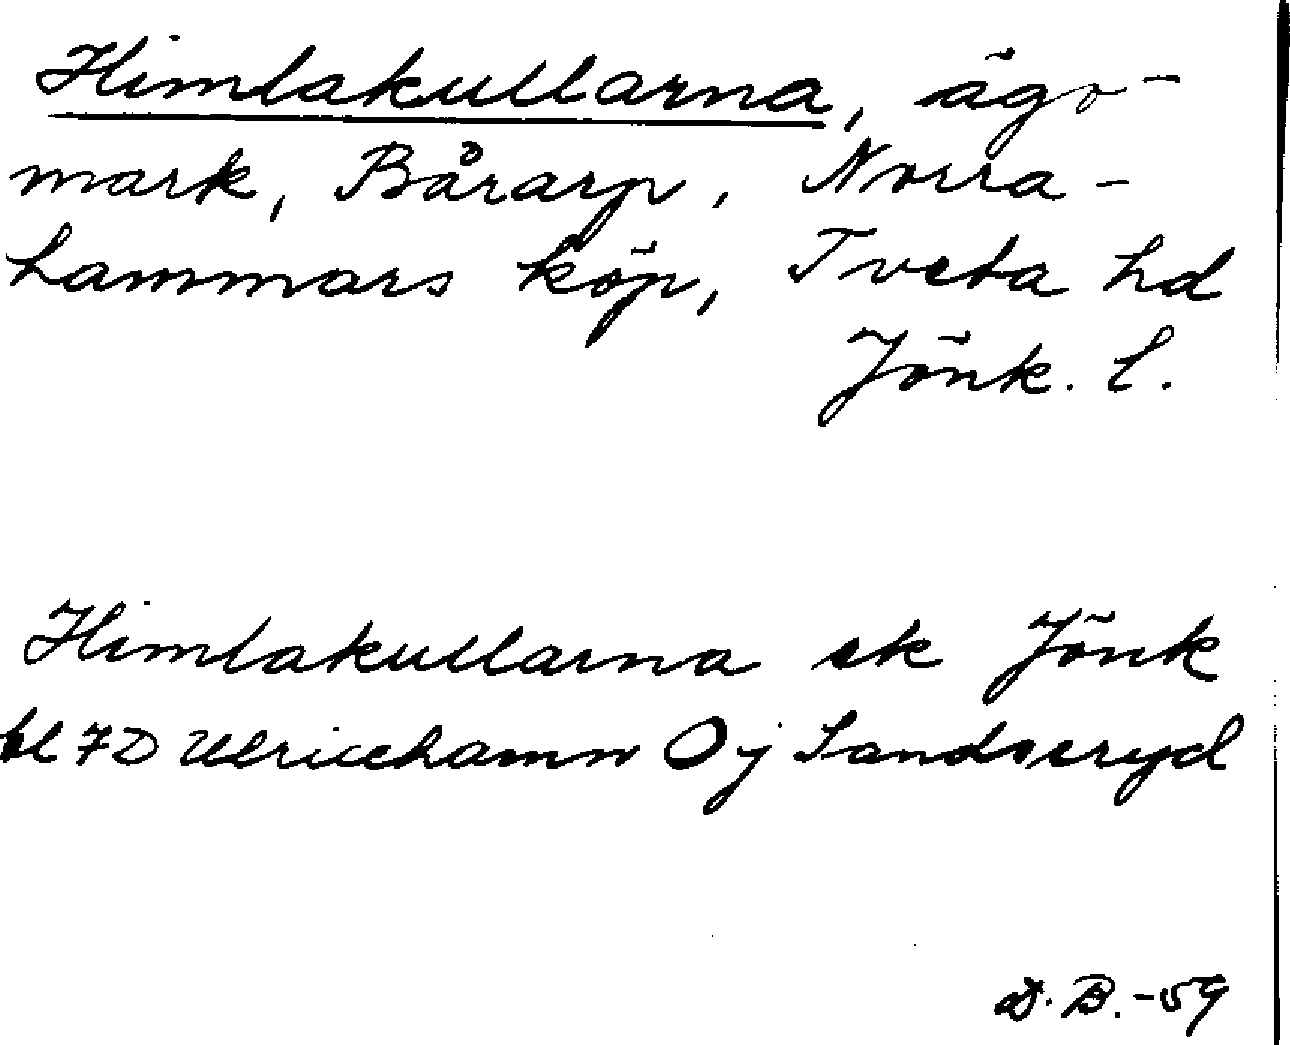 Himlakullarna, ägo-
mark, Bårarp, Norra-
hammars köp, Tveta hd
Jönk. l.
Himlakullarna ek Jönk
bl 7D Ulricehamn Oj Sandseryd
D. B. -59